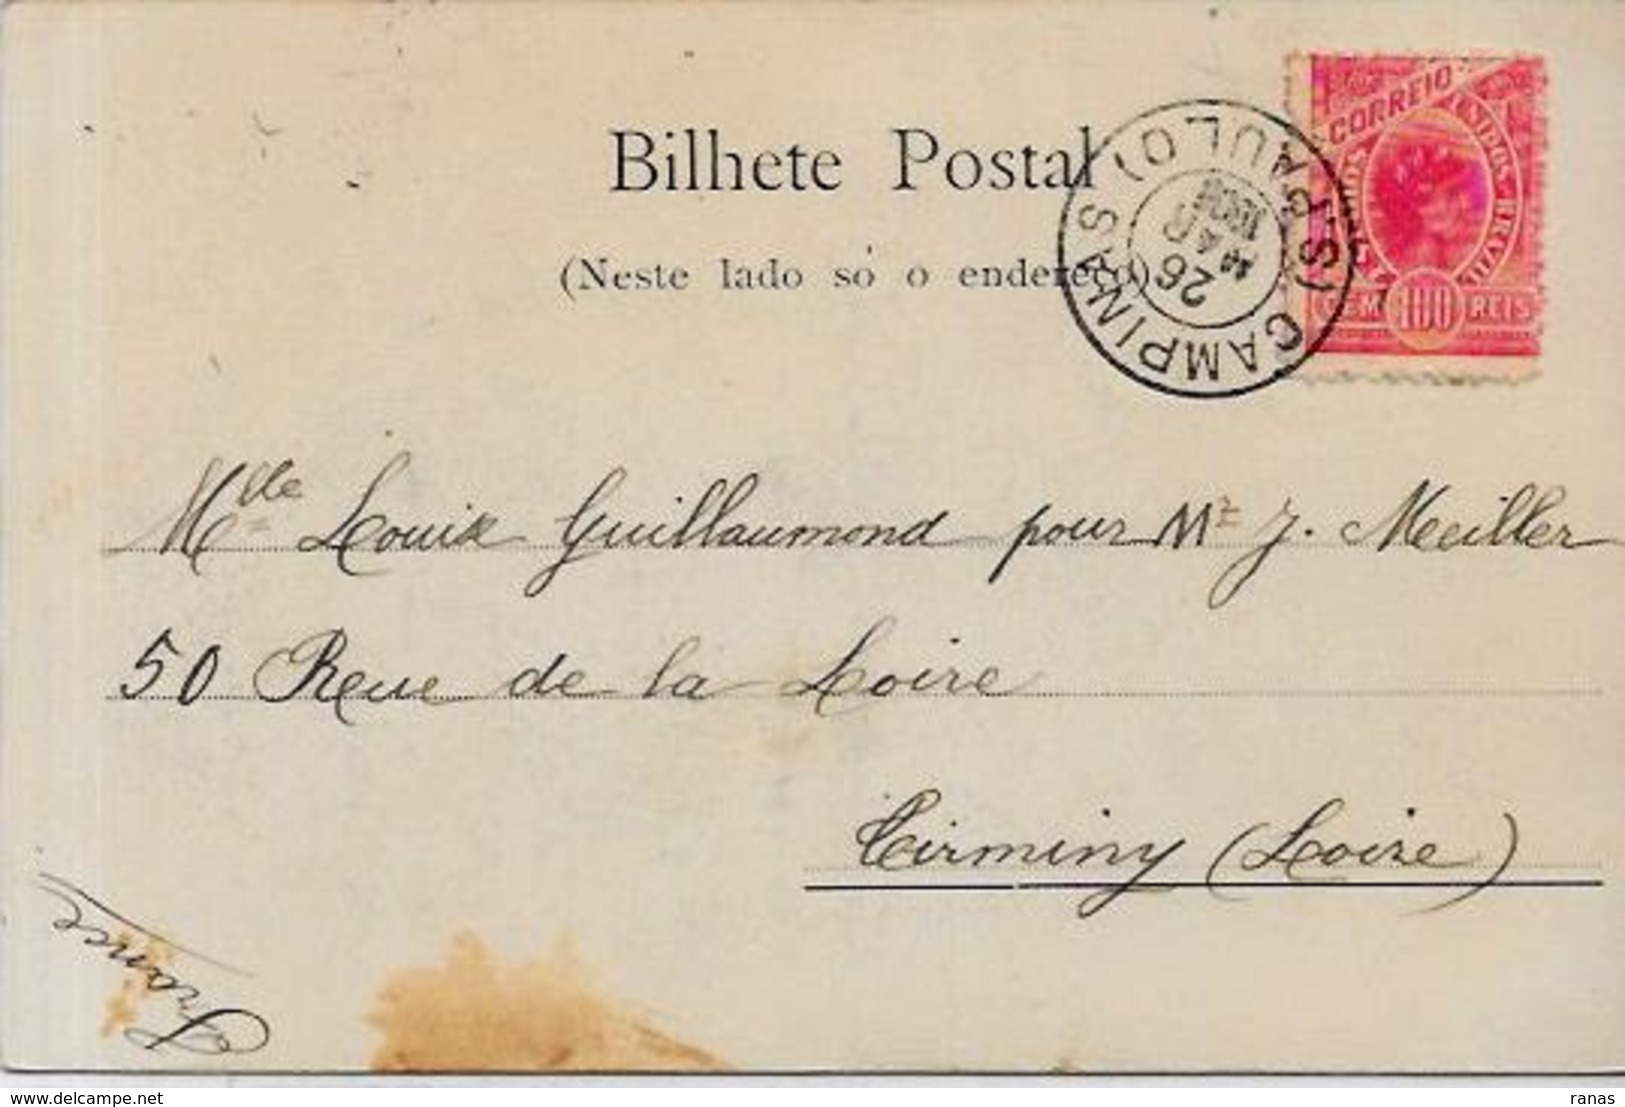 Bilhete Postal
(Neste lado só o endereço)
CORREIO
CEM 100 REIS
CAMPINAS (S. PAULO)
26
Mlle Louise Guillaumond pour Mr J. Meiller
50 Rue de la Loire
Firminy (Loire)
France
www.delcampe.net
ranas